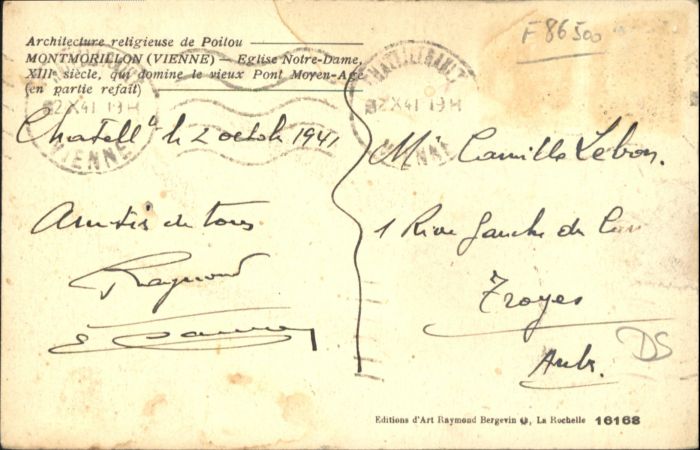 Architecture religieuse de Poitou
MONTMORILLON (VIENNE) — Eglise Notre-Dame,
XIIIᵉ siècle, qui domine le vieux Pont Moyen-Age
(en partie refait)
F 86500
CHATELLERAULT
2 X 41 19H
VIENNE
2 X 41 19H
Chatellᵗ le 2 octob 1941
Amitiés de tous
Raymond
Mʳ Camille Lebon.
1 Rive Gauche du
Troyes
Aube.
DS
Editions d'Art Raymond Bergevin, La Rochelle 16168